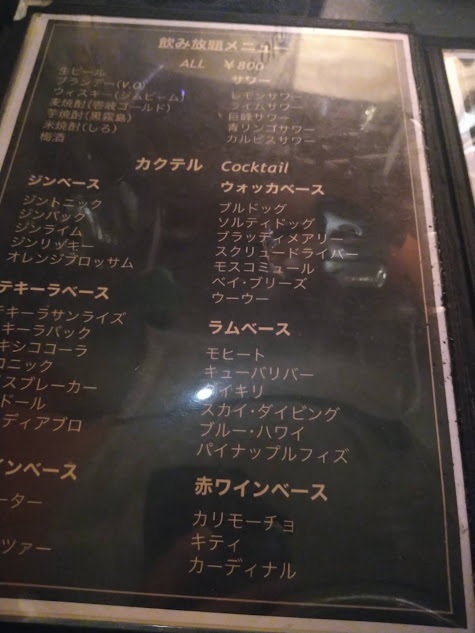 飲み放題メニュー
ALL ¥800
生ビール
ブランデー(V.O)
ウィスキー(ジムビーム)
麦焼酎(壱岐ゴールド)
芋焼酎(黒霧島)
米焼酎(しろ)
梅酒
サワー
レモンサワー
ライムサワー
巨峰サワー
青リンゴサワー
カルピスサワー
カクテル Cocktail
ジンベース
ジントニック
ジンバック
ジンライム
ジンリッキー
オレンジブロッサム
ウォッカベース
ブルドッグ
ソルティドッグ
ブラッディメアリー
スクリュードライバー
モスコミュール
ベイ・ブリーズ
ウーウー
テキーラベース
キーラサンライズ
キーラバック
キシココーラ
コニック
スブレーカー
ドール
ディアブロ
ラムベース
モヒート
キューバリバー
イキリ
スカイ・ダイビング
ブルー・ハワイ
パイナップルフィズ
インベース
ーター
ツァー
赤ワインベース
カリモーチョ
キティ
カーディナル